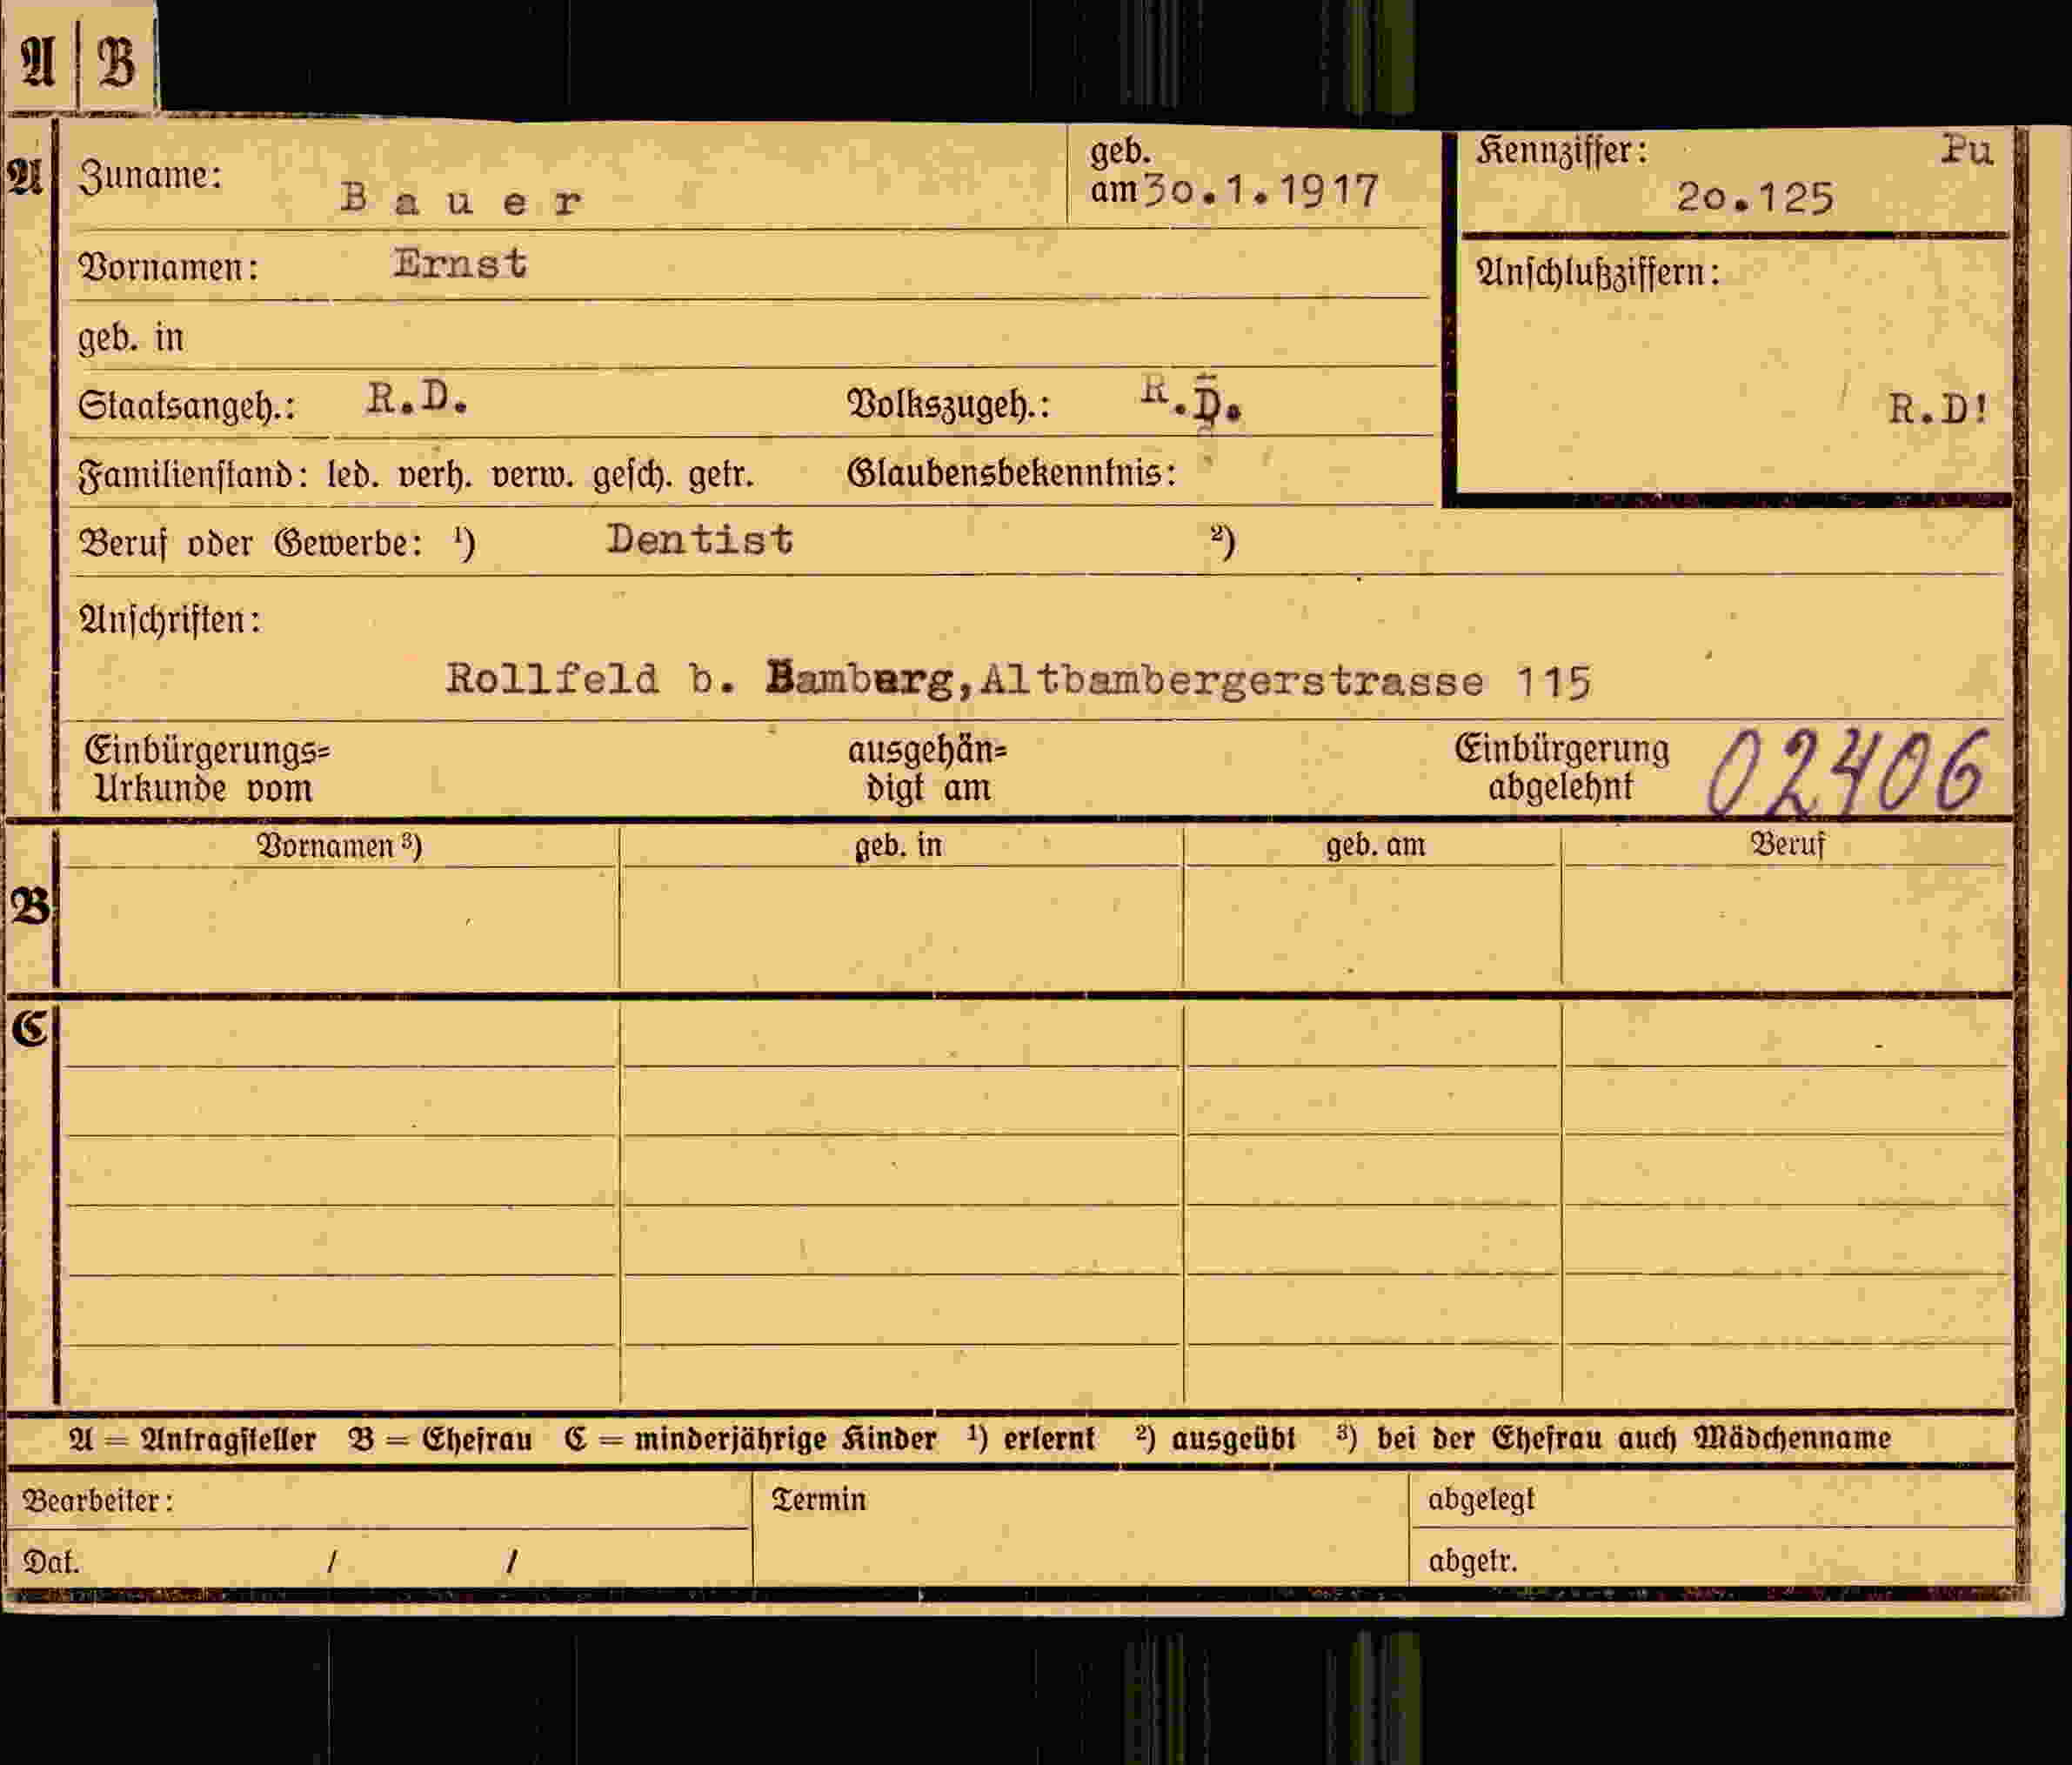 A | B
A
Zuname: Bauer geb. am 30.1.1917
Kennziffer: Pu
20.125
Vornamen: Ernst
Anschlußziffern:
geb. in
Staatsangeh.: R.D. Volkszugeh.: R.D.
R.D!
Familienstand: led. verh. verw. gesch. getr. Glaubensbekenntnis:
Beruf oder Gewerbe: ¹) Dentist ²)
Anschriften:
Rollfeld b. Bamberg,Altbambergerstrasse 115
Einbürgerungs= ausgehän= Einbürgerung 02406
Urkunde vom digt am abgelehnt
Vornamen ³) geb. in geb. am Beruf
B
C
A = Antragsteller B = Ehefrau C = minderjährige Kinder ¹) erlernt ²) ausgeübt ³) bei der Ehefrau auch Mädchenname
Bearbeiter: Termin abgelegt
Dat. / / abgetr.